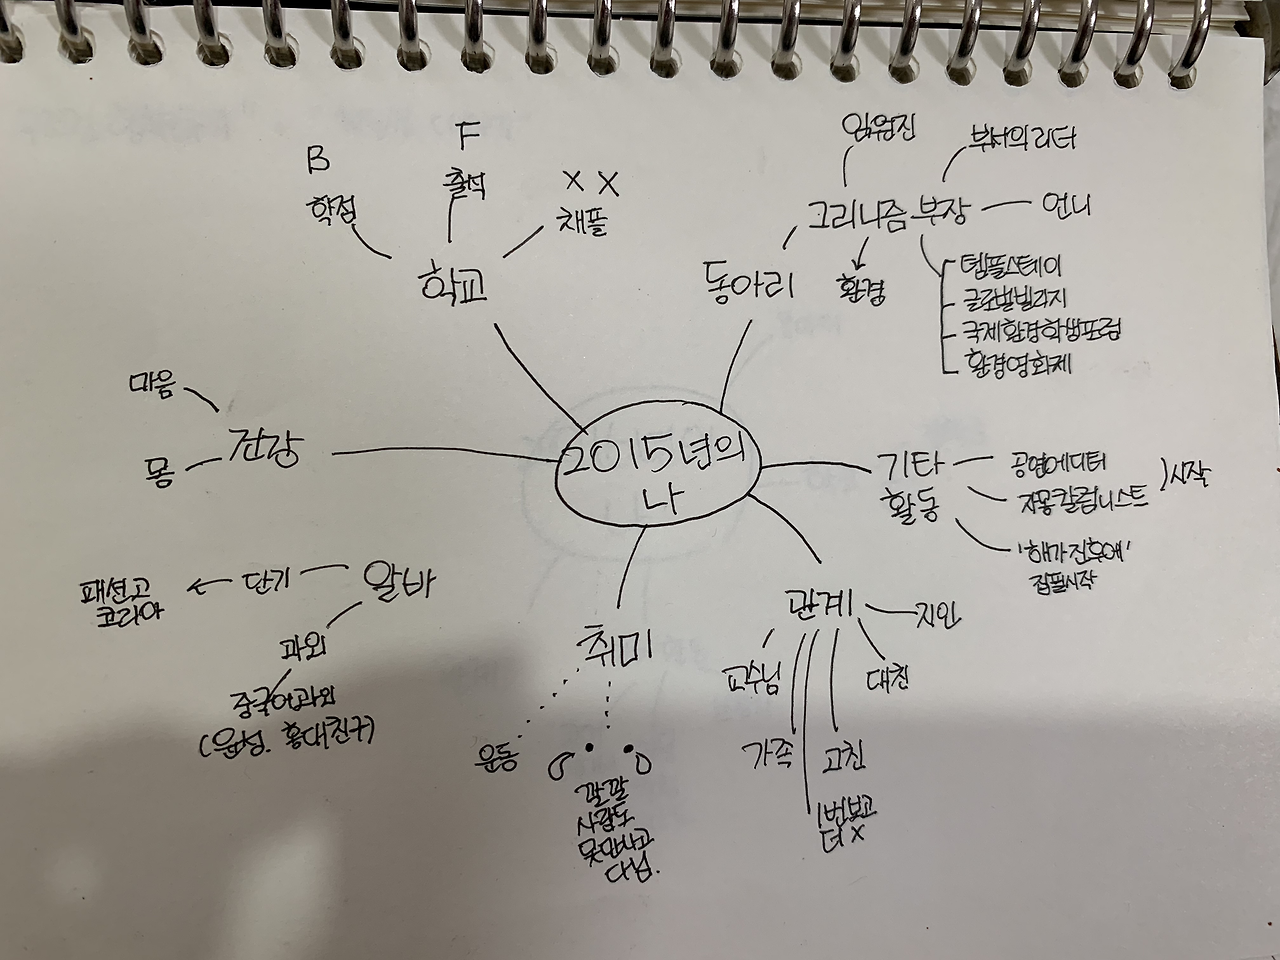 2015년의
나
학교
B
학점
F
출석
X X
채플
동아리
그리니즘 부장
임원진
부서의 리더
언니
환경
템플스테이
글로벌빌리지
국제환경학생포럼
환경영화제
기타
활동
공연에디터
자몽칼럼니스트
시작
'해가 진 후에'
집필시작
관계
지인
대친
고친
1번보고
더 X
가족
교수님
취미
운동
깔깔
사람도
못만나고
다님.
알바
단기
패션고
코리아
과외
중국어과외
(윤성. 홍대친구)
건강
마음
몽